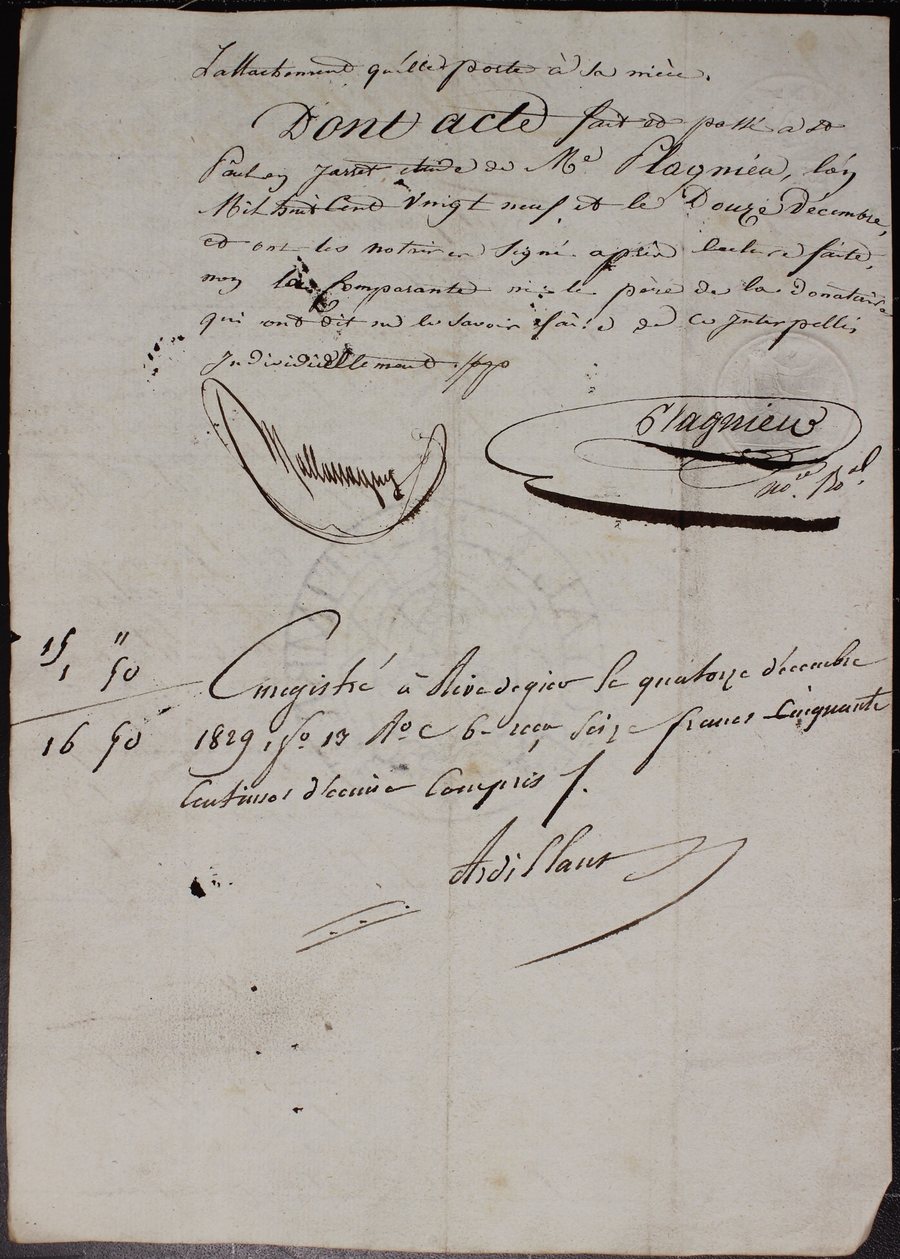 L'attachement qu'elle porte à sa nièce.
Dont acte fait et passé à St
Paul en Jarret, étude de Me Plagnieu, l'an
Mil huit Cent Vingt neuf et le Douze Décembre,
et ont les notaires signé après lecture faite,
non la Comparante ni le père de la donataire
qui ont dit ne le savoir faire de ce Interpellés
Individuellement
Plagnieu
nore. Ral.
15 "
1 50
16 50
Enregistré à Rive de gier le quatorze décembre
1829, fo 13 Ro C 6 reçu Seize francs Cinquante
Centimes décime Compris
Ardillans